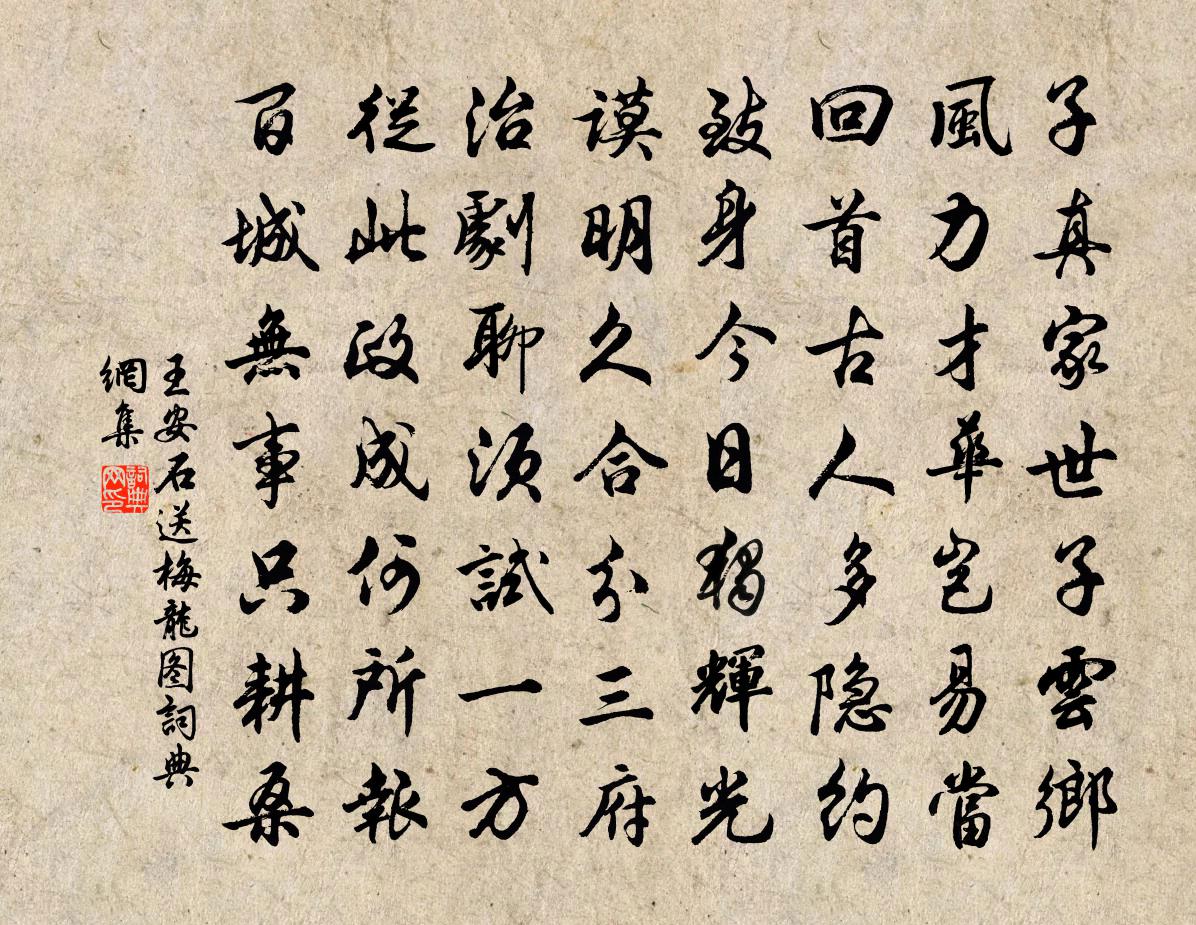 子真家世子雲鄉
風力才華豈易當
回首古人多隐約
致身今日獨輝光
謨明久合分三府
治劇聊須試一方
從此政成何所報
百城無事只耕桑
王安石送梅龍图詞典
網集
詞典
网印